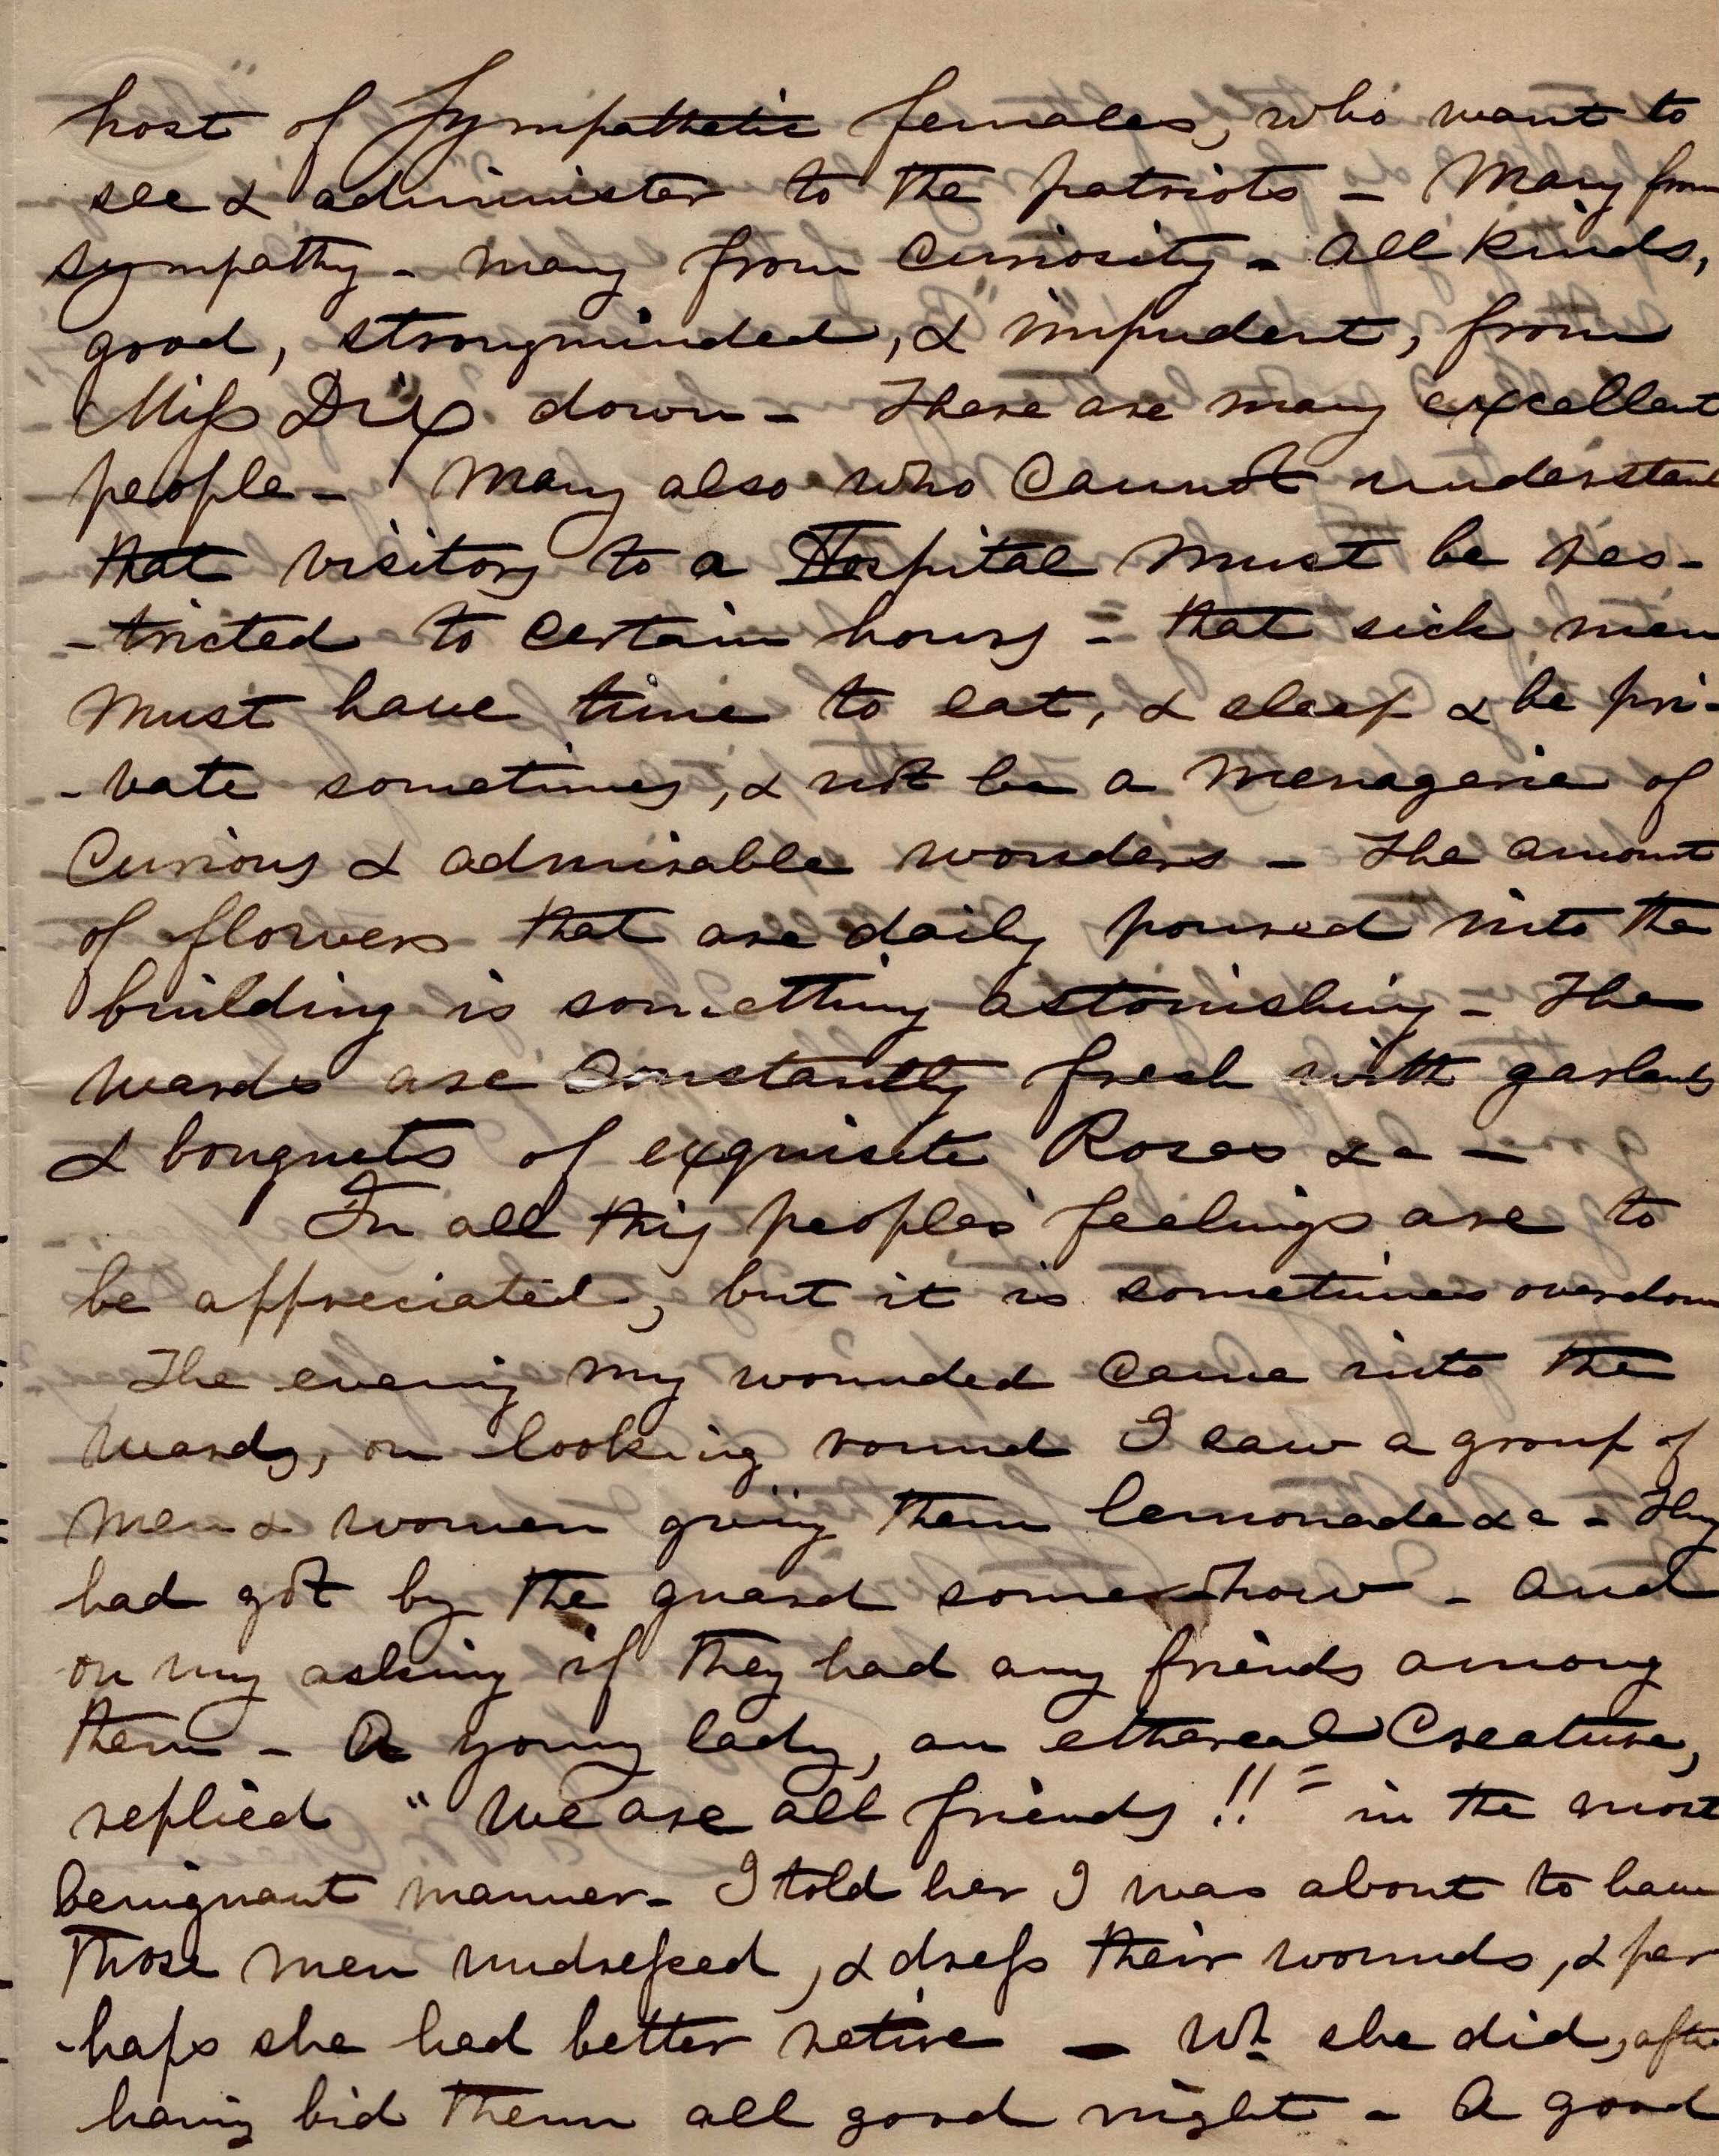 host of sympathetic females, who want to
see & administer to the patriots - Many from
sympathy - many from curiosity - all kinds,
good, strongminded, & impudent, from
Miss Dix down - There are many excellent
people - Many also who cannot understand
that visitors to a Hospital must be res-
-tricted to certain hours = that sick men
must have time to eat, & sleep & be pri-
-vate sometimes, & not be a menagerie of
curious & admirable wonders - The amount
of flowers that are daily poured into the
building is something astonishing - The
wards are constantly fresh with garlands
& bouquets of exquisite Roses &c -
In all this peoples' feelings are to
be appreciated, but it is sometimes overdone
The evening my wounded came into the
wards, on looking round I saw a group of
men & women giving them lemonade &c - They
had got by the guard somehow - and
on my asking if they had any friends among
them - A young lady, an ethereal creature,
replied "We are all friends!!" in the most
benignant manner - I told her I was about to have
those men undressed, & dress their wounds, & per
-haps she had better retire - wh. she did, after
having bid them all good night - A good